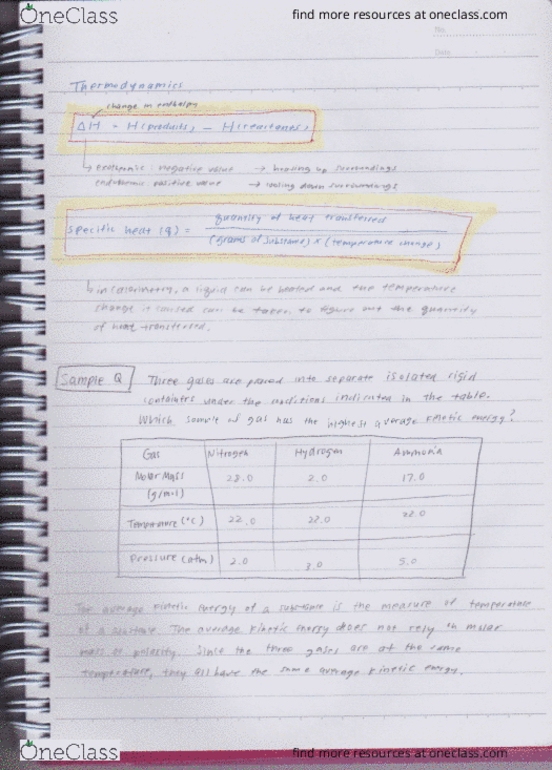 OneClass find more resources at oneclass.com
No.
Date
Thermodynamics
change in enthalpy
ΔH = H(products) - H(reactants)
↳ Exothermic: negative value → heating up surroundings
Endothermic: positive value → cooling down surroundings
Specific heat (q) = quantity of heat transferred
(grams of substance) x (temperature change)
↳ in calorimetry, a liquid can be heated and the temperature
change it caused can be taken to figure out the quantity
of heat transferred.
Sample Q Three gases are placed into separate isolated rigid
containers under the conditions indicated in the table.
Which sample of gas has the highest average kinetic energy?
Gas Nitrogen Hydrogen Ammonia
Molar Mass 28.0 2.0 17.0
(g/mol)
Temperature (°C) 22.0 22.0 22.0
Pressure (atm) 2.0 3.0 5.0
The average kinetic energy of a substance is the measure of temperature
of a substance. The average kinetic energy does not rely on molar
mass or polarity. Since the three gases are at the same
temperature, they all have the same average kinetic energy.
OneClass find more resources at oneclass.com